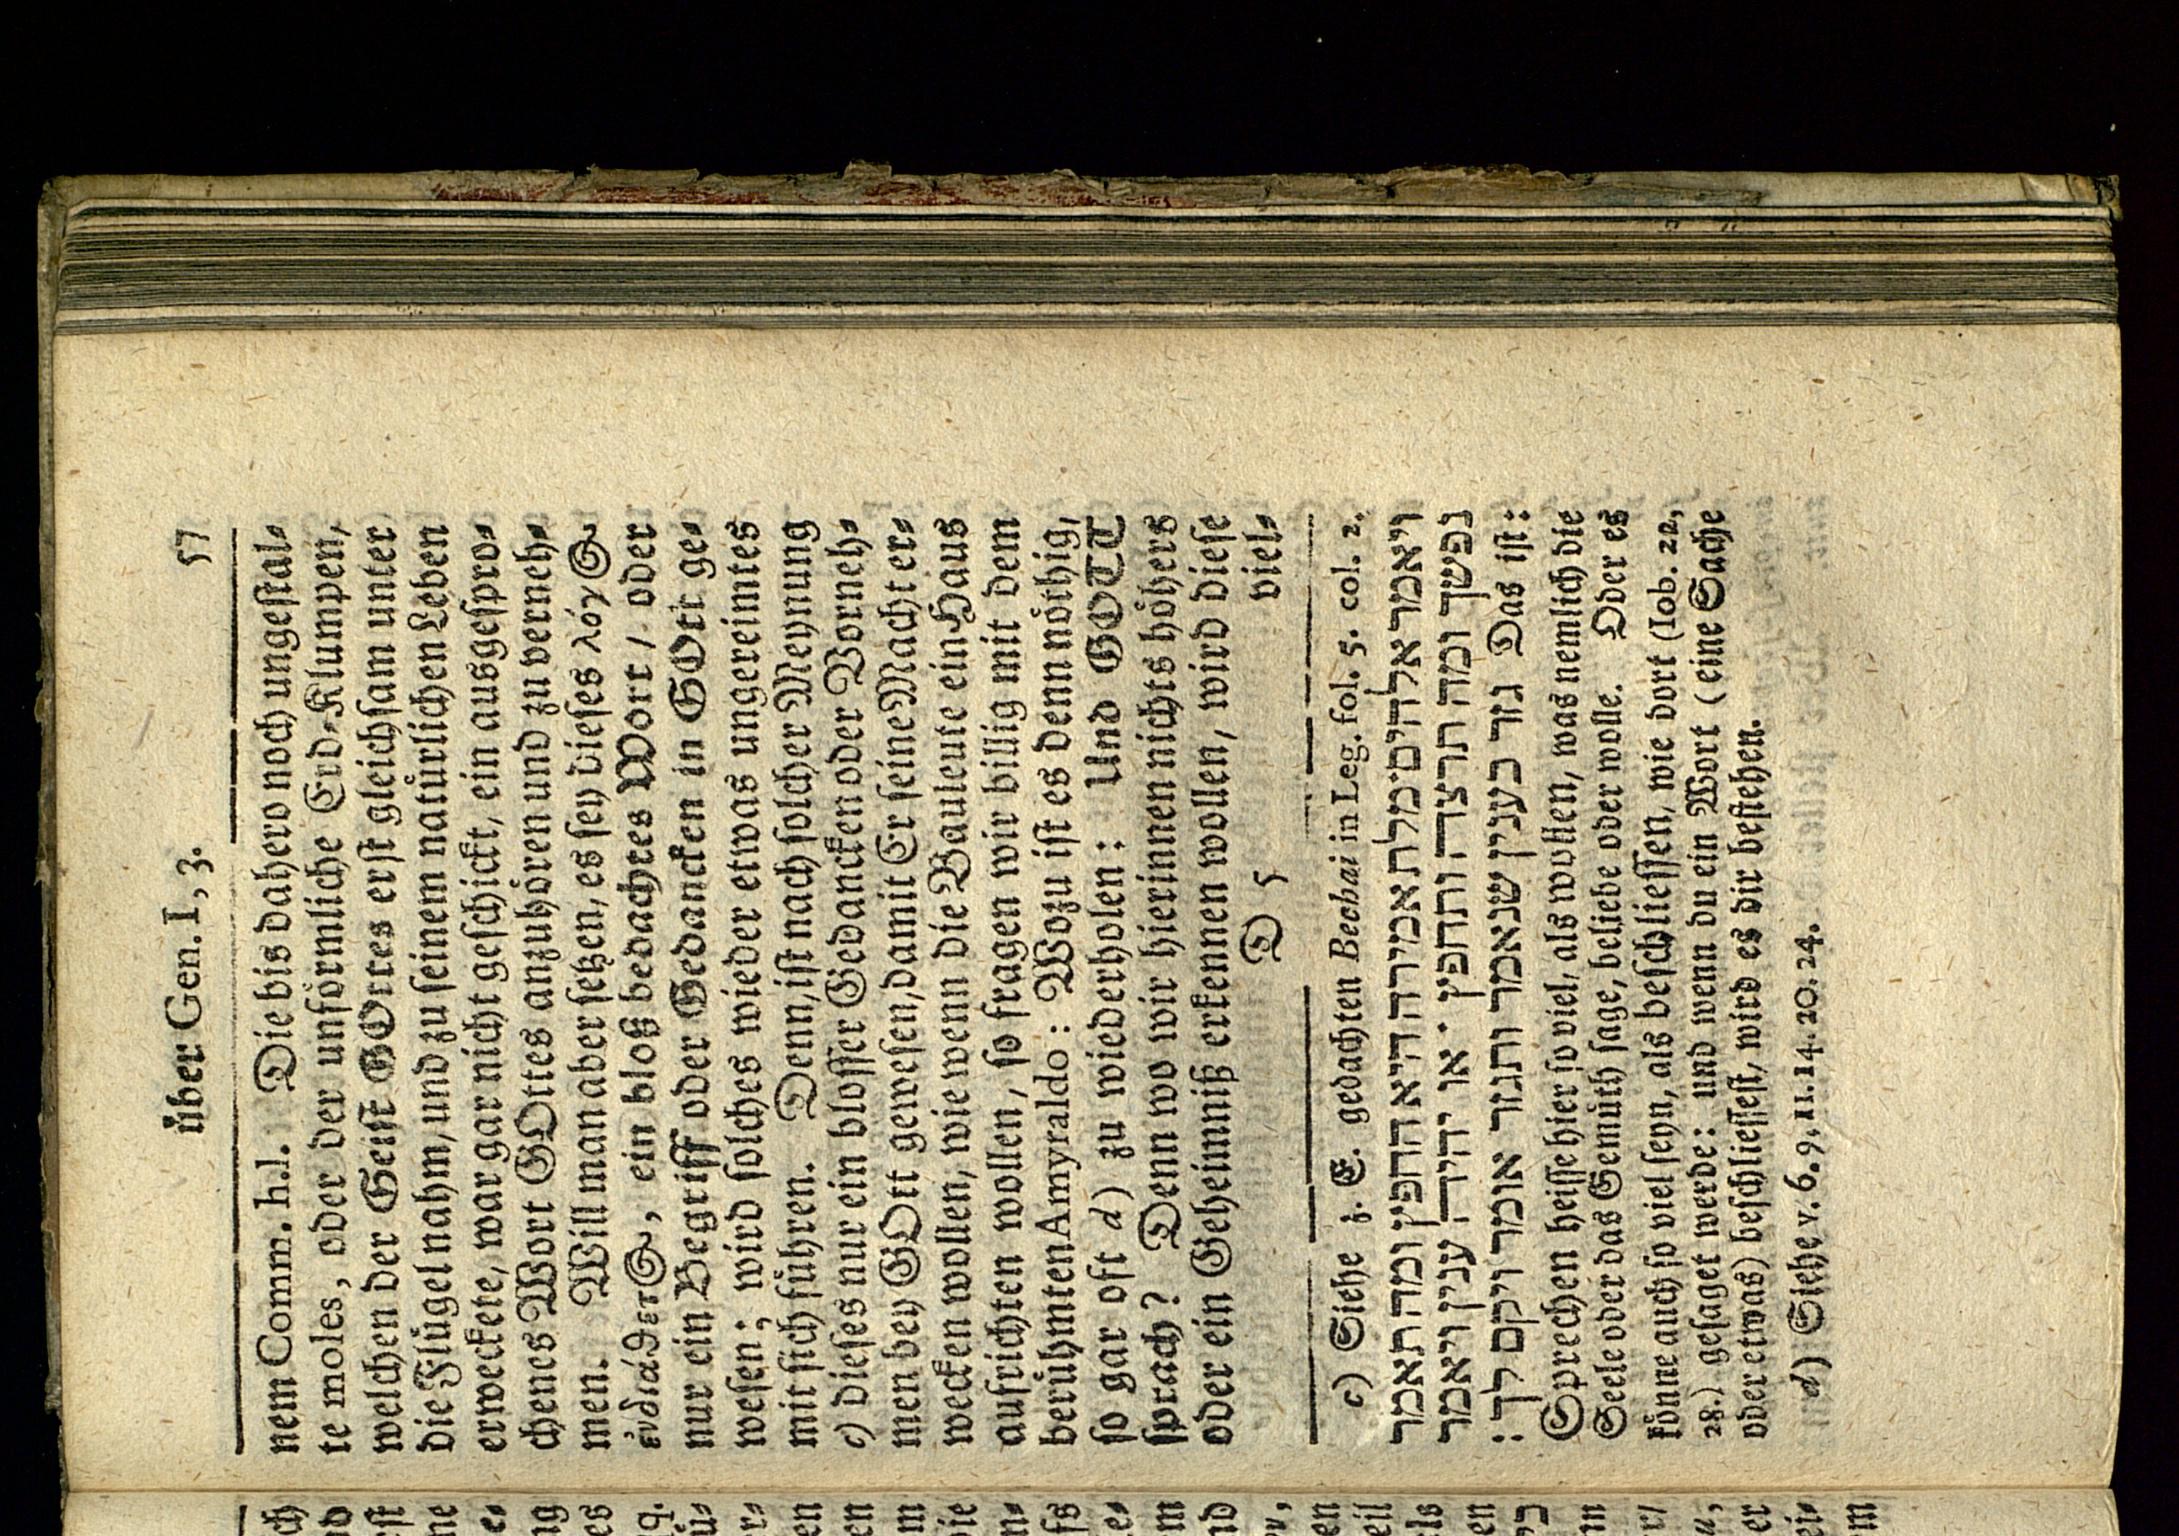 über Gen. I, 3. 57
nem Comm. h.l. Die bis dahero noch ungestal-
te moles, oder der unförmliche Erd-Klumpen,
welchen der Geist GOttes erst gleichsam unter
die Flügel nahm, und zu seinem natürlichen Leben
erweckete, war gar nicht geschickt, ein ausgespro-
chenes Wort GOttes anzuhören und zu verneh-
men. Will man aber setzen, es sey dieses λόγος
ἐνδιάθετος, ein bloß bedachtes Wort, oder
nur ein Begriff oder Gedancken in GOtt ge-
wesen; wird solches wieder etwas ungereimtes
mit sich führen. Denn, ist nach solcher Meynung
c) dieses nur ein blosser Gedancken oder Vorneh-
men bey GOtt gewesen, damit Er seine Macht er-
wecken wollen, wie wenn die Bauleute ein Haus
aufrichten wollen, so fragen wir billig mit dem
berühmten Amyraldo: Wozu ist es denn nöthig,
so gar oft d) zu wiederholen: Und GOTT
sprach? Denn wo wir hierinnen nichts höhers
oder ein Geheimniß erkennen wollen, wird diese
D 5 viel-
c) Siehe z. E. gedachten Bechai in Leg. fol. 5. col. 2.
ויאמר אלהים מלת אמירה היא החפץ ומה תאמר
נפשך ומה תרצה ותחפץ · או יהיה ענין ויאמר
גזר כענין שנאמר ותגזר אומר ויקם לך: Das ist:
Sprechen heisse hier so viel, als wollen, was nemlich die
Seele oder das Gemüth sage, beliebe oder wolle. Oder es
könne auch so viel seyn, als beschliessen, wie dort (Iob. 22,
28.) gesaget werde: und wenn du ein Wort (eine Sache
oder etwas) beschliessest, wird es dir bestehen.
d) Siehe v. 6. 9. 11. 14. 20. 24.